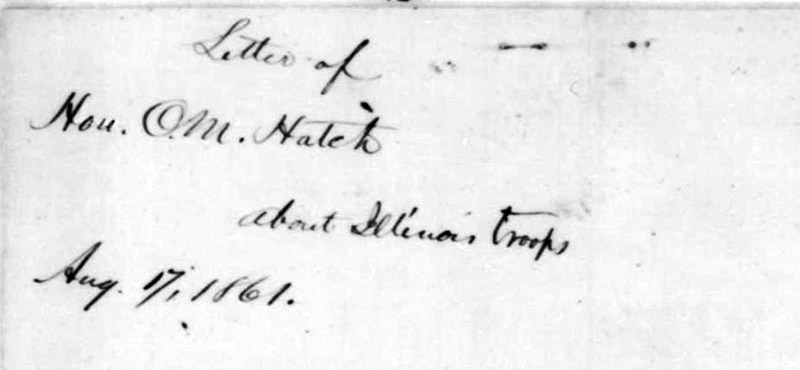 Letter of
Hon. O.M. Hatch
about Illinois troops
Aug. 17, 1861.